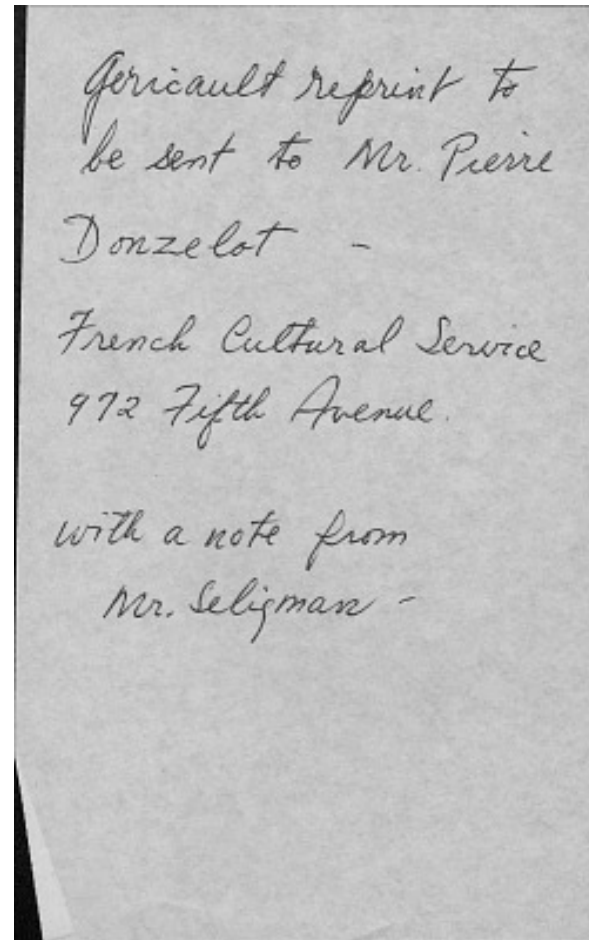 Gericault reprint to
be sent to Mr. Pierre
Donzelot -
French Cultural Service
972 Fifth Avenue.
with a note from
Mr. Seligman -